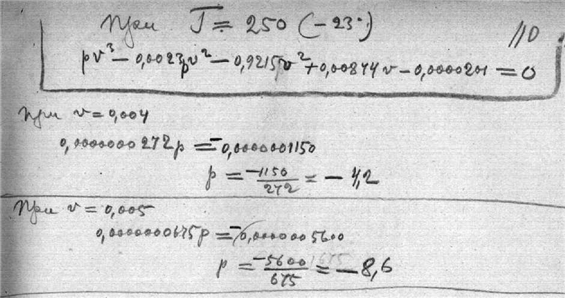 При T = 250 (-23°)
110
pv³ - 0,0023pv² - 0,9215v² + 0,00874v - 0,0000201 = 0
При v = 0,004
0,0000000272p = -0,0000001150
p = -1150/272 = -4,2
При v = 0,005
0,0000000675p = -0,0000005600
p = -5600/675 = -8,6